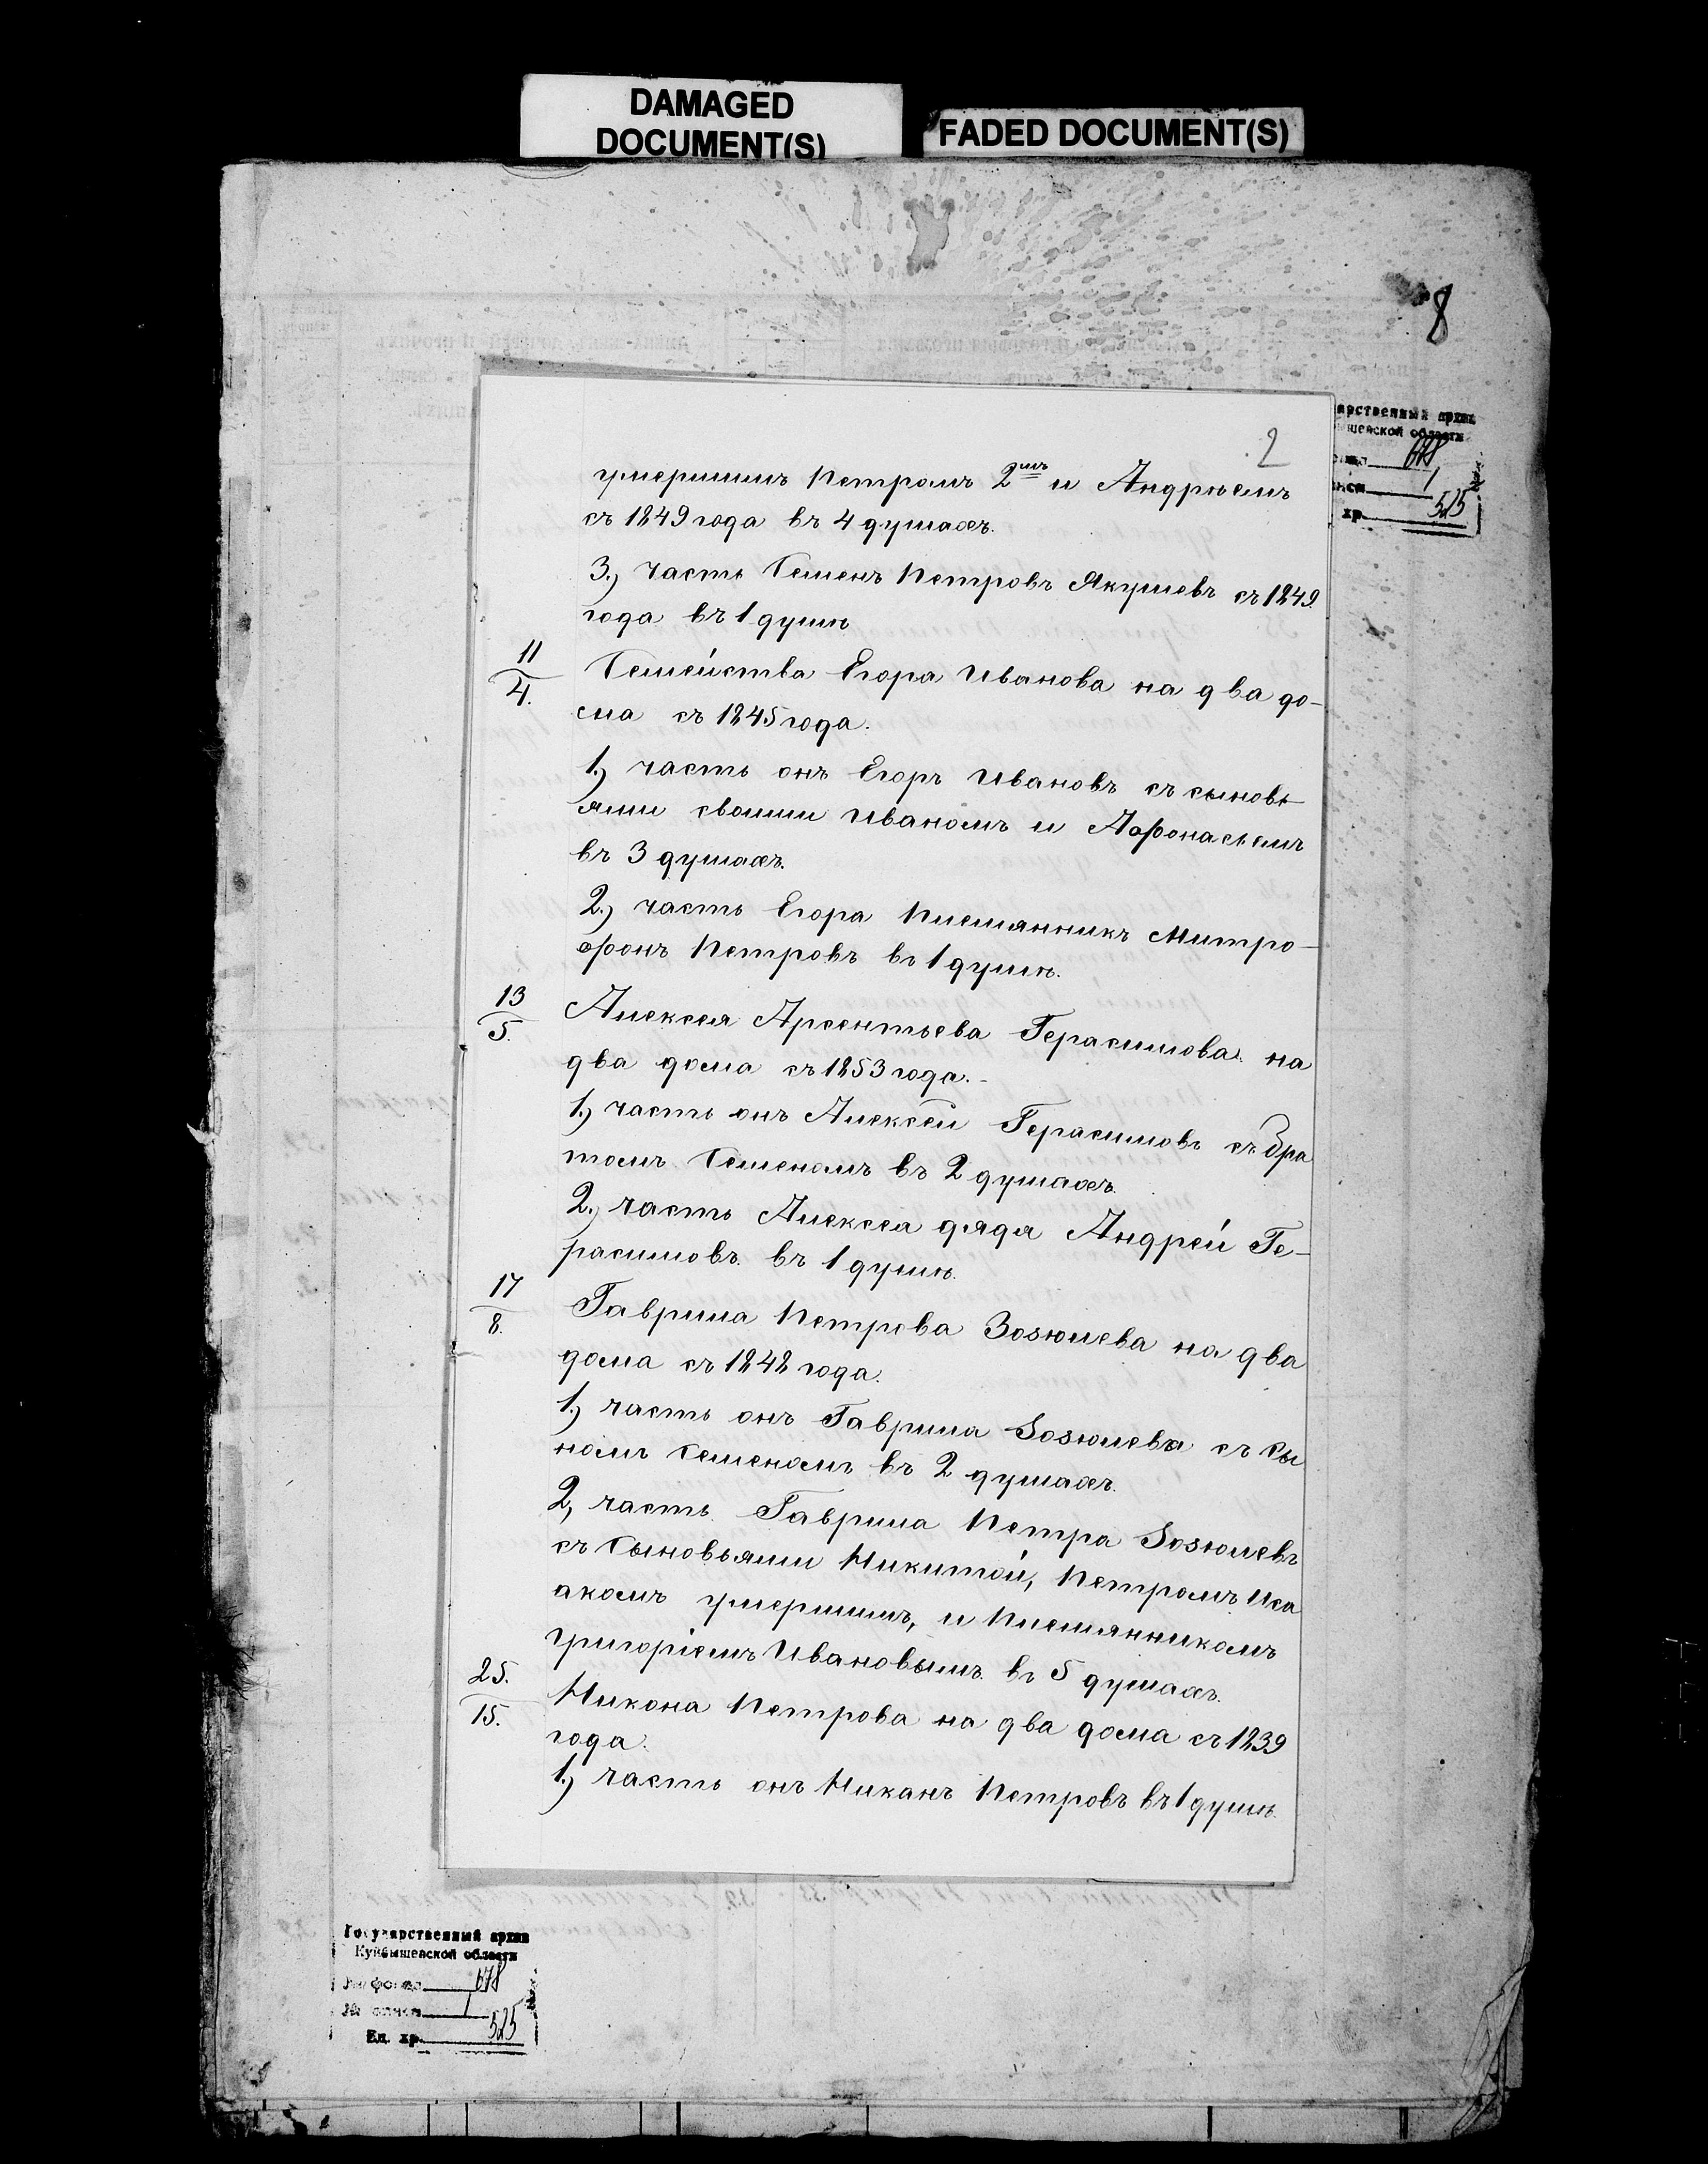 DAMAGED
DOCUMENT(S)
FADED DOCUMENT(S)
8
2
арственный архив
шевской области
678
1
хр. 525
умершимъ Петромъ 2мъ и Андреемъ
съ 1849 года въ 4 душахъ.
3.) часть Семенъ Петровъ Якушевъ съ 1849
года въ 1 душѣ
11/4. Семейства Егора Иванова на два до-
ма съ 1845 года.
1.) часть онъ Егоръ Ивановъ съ сыновь
ями своими Иваномъ и Афонасьемъ
въ 3 душахъ.
2.) часть Егора племянникъ Митро-
фонъ Петровъ въ 1 душѣ.
13/5. Алексея Арсентьева Герасимова на
два дома съ 1853 года.-
1.) часть онъ Алексей Герасимовъ съ бра
томъ Семеномъ въ 2 душахъ.
2.) часть Алексея дядя Андрей Ге-
расимовъ. въ 1 душѣ.
17/8. Гаврила Петрова Зозюлева на два
дома съ 1848 года.
1.) часть онъ Гаврила Зозюлевъ съ сы
номъ Семеномъ въ 2 душахъ.
2, часть. Гаврила Петра Зозюлевъ
съ сыновьями Никитой, Петромъ Иса
акомъ умершимъ, и племянникомъ
григоріемъ Ивановымъ. въ 5 душахъ.
25./15. Никона Петрова на два дома съ 1839
года.
1.) часть онъ Никанъ Петровъ въ 1 душѣ.
Государственный архив
Куйбышевской области
№ фонда 678
№ описи 1
Ед. хр. 525